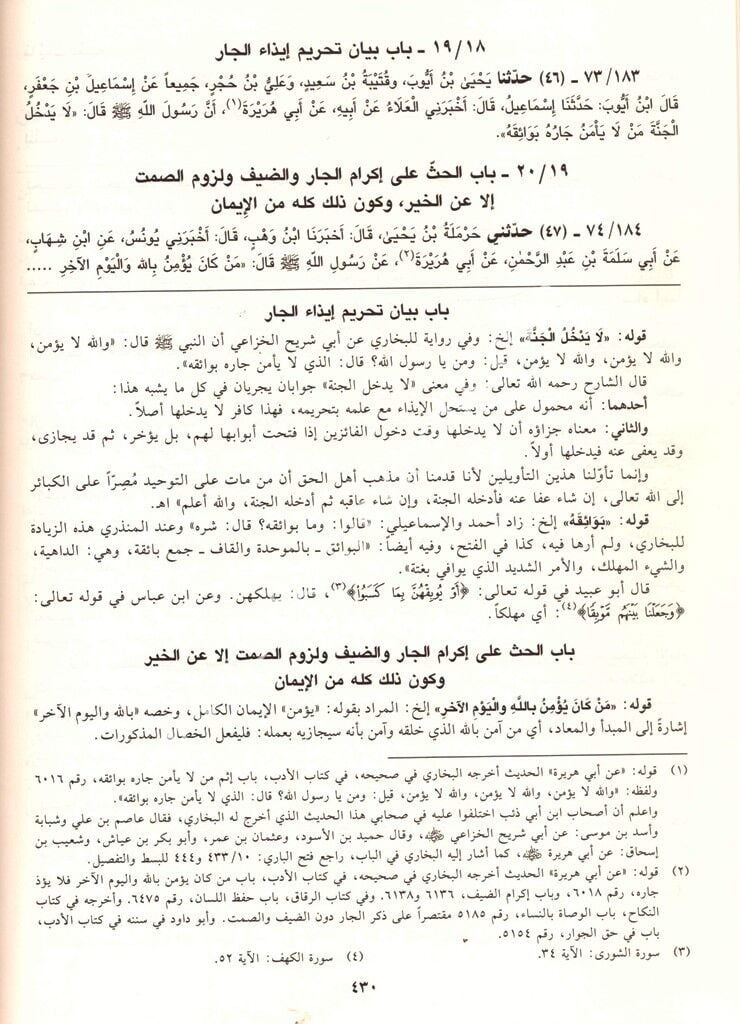 ١٩/١٨ ـ باب بيان تحريم إيذاء الجار
٧٣/١٨٣ ـ (٤٦) حدّثنا يَحْيَىٰ بْنُ أَيُّوبَ، وقُتَيْبَةُ بْنُ سَعِيدٍ، وَعَلِيُّ بْنُ حُجْرٍ، جَمِيعاً عَنْ إِسْمَاعِيلَ بْنِ جَعْفَرٍ،
قَالَ ابْنُ أَيُّوبَ: حَدَّثَنَا إِسْمَاعِيلُ، قَالَ: أَخْبَرَنِي الْعَلاَءُ عَنْ أَبِيهِ، عَنْ أَبِي هُرَيْرَةَ(١)، أَنَّ رَسُولَ اللهِ ﷺ قَالَ: «لاَ يَدْخُلُ
الْجَنَّةَ مَنْ لاَ يَأْمَنُ جَارُهُ بَوَائِقَهُ».
٢٠/١٩ ـ باب الحثّ على إكرام الجار والضيف ولزوم الصمت
إلا عن الخير، وكون ذلك كله من الإيمان
٧٤/١٨٤ ـ (٤٧) حدّثني حَرْمَلَةُ بْنُ يَحْيَىٰ، قَالَ: أَخْبَرَنَا ابْنُ وَهْبٍ، قَالَ: أَخْبَرَنِي يُونُسُ، عَنِ ابْنِ شِهَابٍ،
عَنْ أَبِي سَلَمَةَ بْنِ عَبْدِ الرَّحْمٰنِ، عَنْ أَبِي هُرَيْرَةَ(٢)، عَنْ رَسُولِ اللهِ ﷺ قَالَ: «مَنْ كَانَ يُؤْمِنُ بِالله وَالْيَوْمِ الآخِرِ .....
باب بيان تحريم إيذاء الجار
قوله: «لاَ يَدْخُلُ الْجَنَّةَ» إلخ: وفي رواية للبخاري عن أبي شريح الخزاعي أن النبي ﷺ قال: «والله لا يؤمن،
والله لا يؤمن، والله لا يؤمن، قيل: ومن يا رسول الله؟ قال: الذي لا يأمن جاره بوائقه».
قال الشارح رحمه الله تعالى: وفي معنى «لا يدخل الجنة» جوابان يجريان في كل ما يشبه هذا:
أحدهما: أنه محمول على من يستحل الإيذاء مع علمه بتحريمه، فهذا كافر لا يدخلها أصلاً.
والثاني: معناه جزاؤه أن لا يدخلها وقت دخول الفائزين إذا فتحت أبوابها لهم، بل يؤخر، ثم قد يجازى،
وقد يعفى عنه فيدخلها أولاً.
وإنما تأوّلنا هذين التأويلين لأنا قدمنا أن مذهب أهل الحق أن من مات على التوحيد مُصِرّاً على الكبائر
إلى الله تعالى، إن شاء عفا عنه فأدخله الجنة، وإن شاء عاقبه ثم أدخله الجنة، والله أعلم» اهـ.
قوله: «بَوَائِقَهُ» إلخ: زاد أحمد والإسماعيلي: «قالوا: وما بوائقه؟ قال: شره» وعند المنذري هذه الزيادة
للبخاري، ولم أرها فيه، كذا في الفتح، وفيه أيضاً: «البوائق ـ بالموحدة والقاف ـ جمع بائقة، وهي: الداهية،
والشيء المهلك، والأمر الشديد الذي يوافي بغتة».
قال أبو عبيد في قوله تعالى: ﴿أَوْ يُوبِقْهُنَّ بِمَا كَسَبُوا﴾(٣)، قال: يهلكهن. وعن ابن عباس في قوله تعالى:
﴿وَجَعَلْنَا بَيْنَهُم مَّوْبِقًا﴾(٤): أي مهلكاً.
باب الحث على إكرام الجار والضيف ولزوم الصمت إلا عن الخير
وكون ذلك كله من الإيمان
قوله: «مَنْ كَانَ يُؤْمِنُ بِاللَّهِ وَالْيَوْمِ الآخرِ» إلخ: المراد بقوله: «يؤمن» الإيمان الكامل، وخصه «بالله واليوم الآخر»
إشارةً إلى المبدأ والمعاد، أي من آمن بالله الذي خلقه وآمن بأنه سيجازيه بعمله: فليفعل الخصال المذكورات.
(١) قوله: «عن أبي هريرة» الحديث أخرجه البخاري في صحيحه، في كتاب الأدب، باب إثم من لا يأمن جاره بوائقه، رقم ٦٠١٦
ولفظه: «والله لا يؤمن، والله لا يؤمن، والله لا يؤمن، قيل: ومن يا رسول الله؟ قال: الذي لا يأمن جاره بوائقه».
واعلم أن أصحاب ابن أبي ذئب اختلفوا عليه في صحابي هذا الحديث الذي أخرج له البخاري، فقال عاصم بن علي وشبابة
وأسد بن موسى: عن أبي شريح الخزاعي ﵁، وقال حميد بن الأسود، وعثمان بن عمر، وأبو بكر بن عياش، وشعيب بن
إسحاق: عن أبي هريرة ﵁، كما أشار إليه البخاري في الباب، راجع فتح الباري: ٤٣٣/١٠ و٤٤٤ للبسط والتفصيل.
(٢) قوله: «عن أبي هريرة» الحديث أخرجه البخاري في صحيحه، في كتاب الأدب، باب من كان يؤمن بالله واليوم الآخر فلا يؤذ
جاره، رقم ٦٠١٨، وباب إكرام الضيف، ٦١٣٦ و٦١٣٨. وفي كتاب الرقاق، باب حفظ اللسان، رقم ٦٤٧٥. وأخرجه في كتاب
النكاح، باب الوصاة بالنساء، رقم ٥١٨٥ مقتصراً على ذكر الجار دون الضيف والصمت. وأبو داود في سننه في كتاب الأدب،
باب في حق الجوار، رقم ٥١٥٤.
(٣) سورة الشورى: الآية ٣٤. (٤) سورة الكهف: الآية ٥٢.
٤٣٠